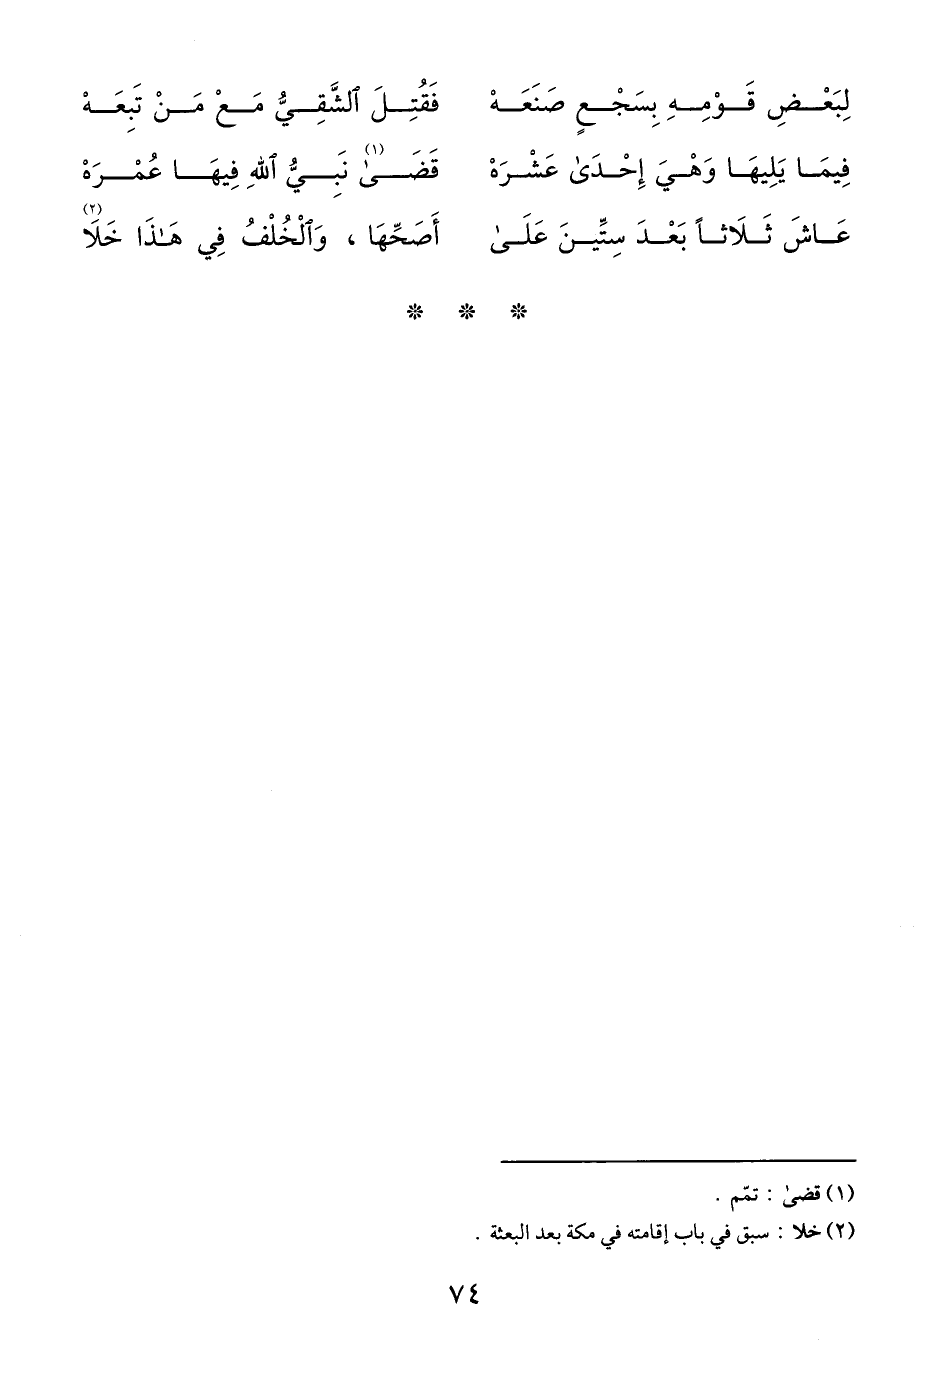 لِبَعْـضِ قَـوْمِـهِ بِسَجْـعٍ صَنَعَـهْ فَقُتِـلَ ٱلشَّقِـيُّ مَـعْ مَـنْ تَبِعَـهْ
فِيمَـا يَلِيهَـا وَهْـيَ إِحْـدَىٰ عَشْـرَهْ قَضَـىٰ(١) نَبِـيُّ ٱللهِ فِيهَـا عُمْـرَهْ
عَـاشَ ثَـلَاثـاً بَعْـدَ سِتِّيـنَ عَلَـىٰ أَصَحِّهَا ، وَٱلْخُلْفُ فِي هَـٰذَا خَلَا(٢)
* * *
(١) قضىٰ : تمّم .
(٢) خلا : سبق في باب إقامته في مكة بعد البعثة .
٧٤